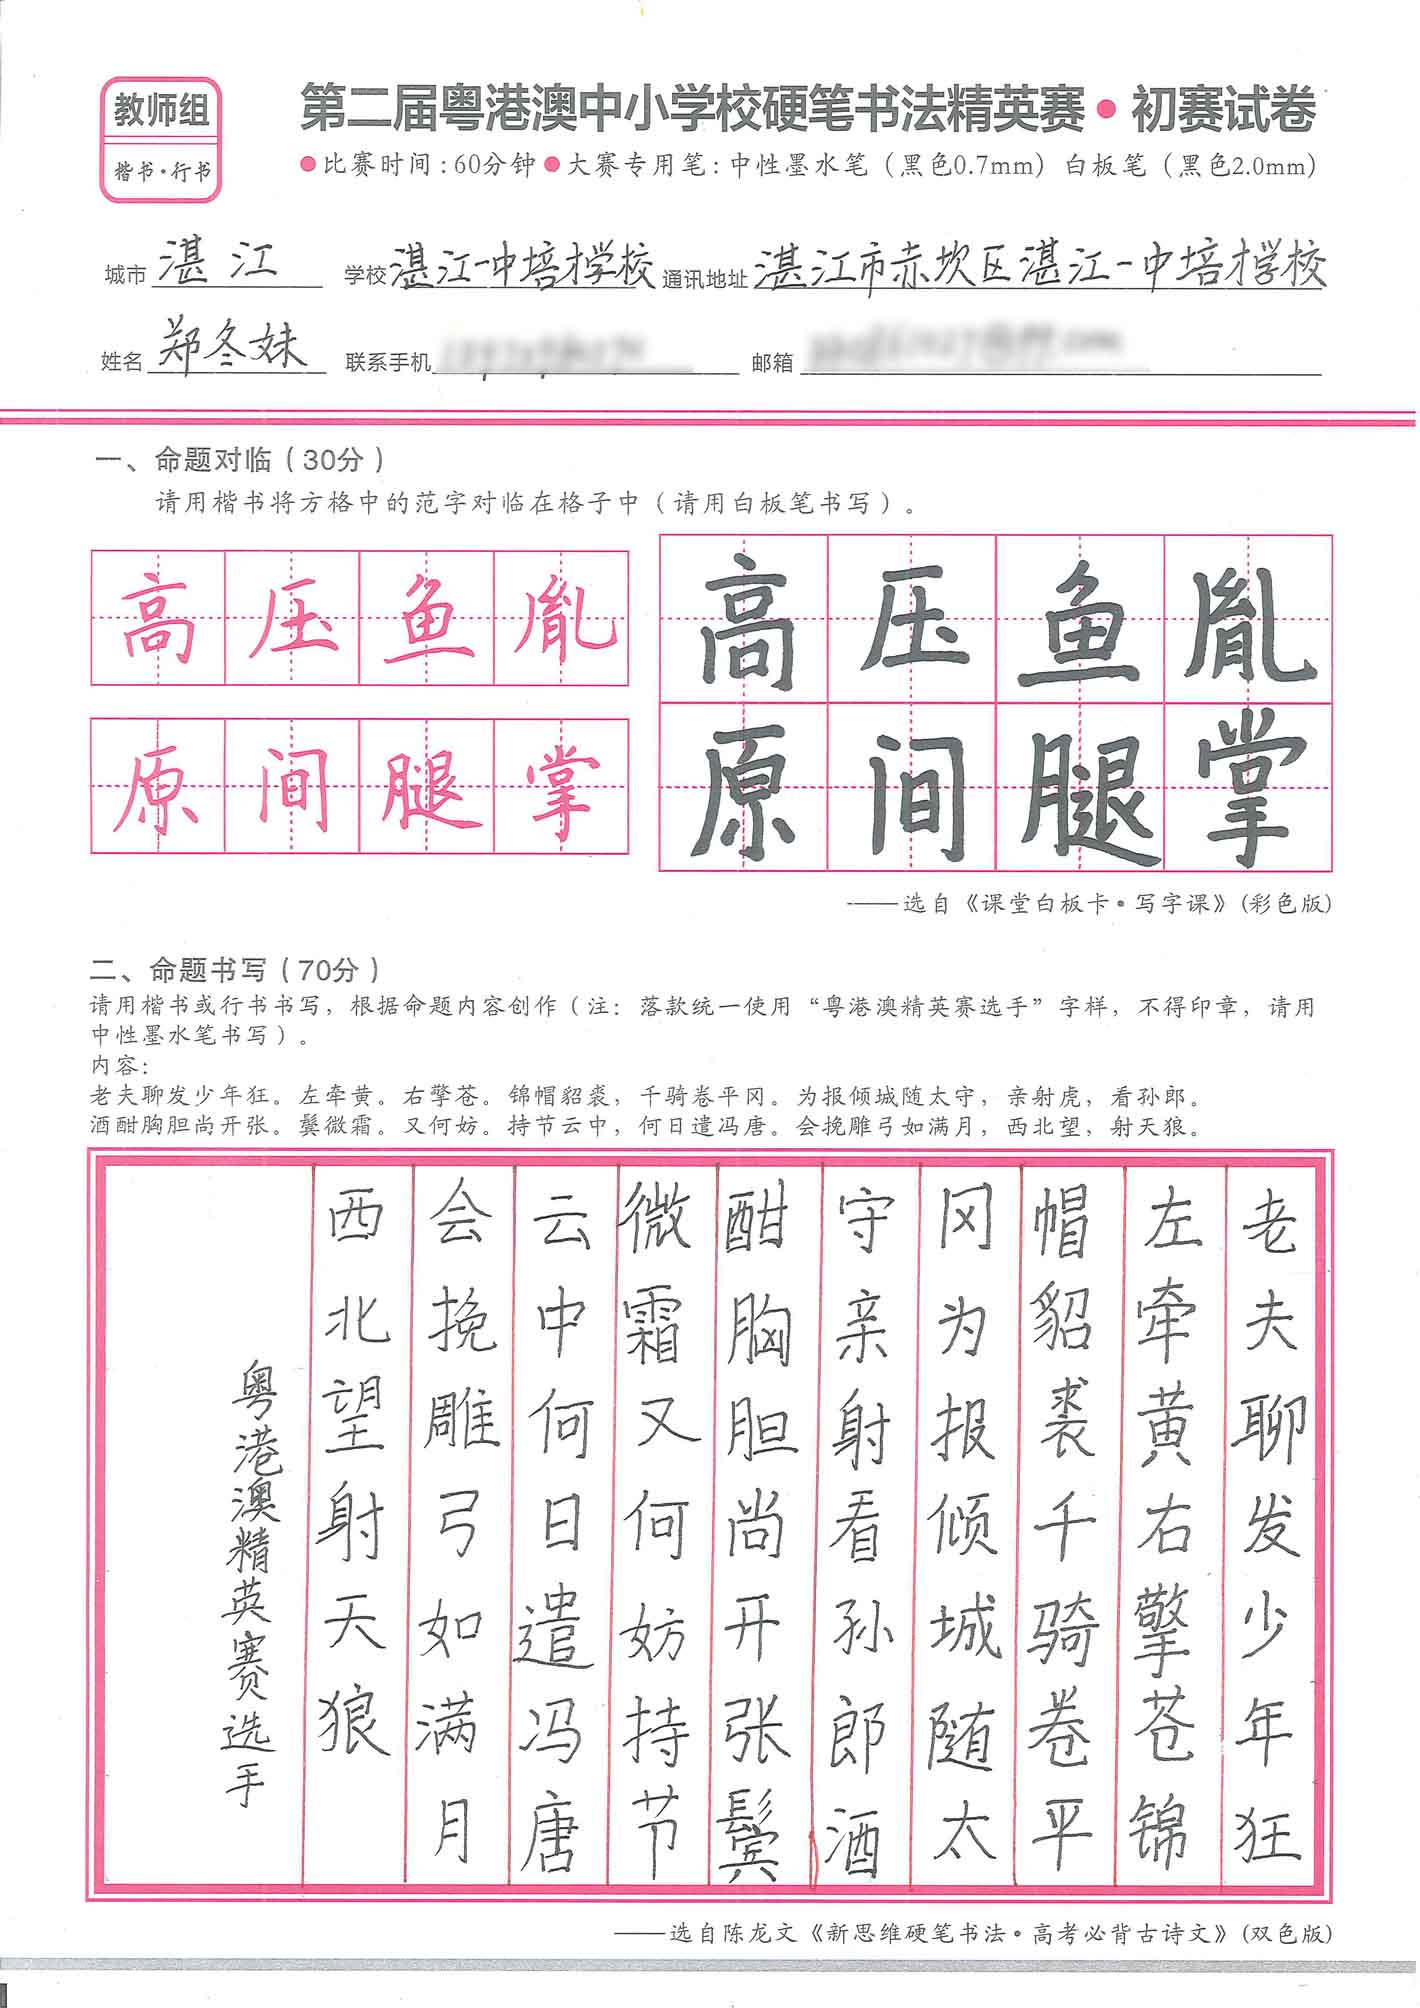 教师组
楷书·行书
第二届粤港澳中小学校硬笔书法精英赛●初赛试卷
●比赛时间:60分钟●大赛专用笔:中性墨水笔（黑色0.7mm）白板笔（黑色2.0mm）
城市 湛江 学校 湛江一中培才学校 通讯地址 湛江市赤坎区湛江一中培才学校
姓名 郑冬妹 联系手机 邮箱
一、命题对临（30分）
请用楷书将方格中的范字对临在格子中（请用白板笔书写）。
高压鱼胤
原间腿掌
高压鱼胤
原间腿掌
——选自《课堂白板卡·写字课》(彩色版)
二、命题书写（70分）
请用楷书或行书书写，根据命题内容创作（注：落款统一使用“粤港澳精英赛选手”字样，不得印章，请用
中性墨水笔书写）。
内容：
老夫聊发少年狂。左牵黄。右擎苍。锦帽貂裘，千骑卷平冈。为报倾城随太守，亲射虎，看孙郎。
酒酣胸胆尚开张。鬓微霜。又何妨。持节云中，何日遣冯唐。会挽雕弓如满月，西北望，射天狼。
老夫聊发少年狂
左牵黄右擎苍锦
帽貂裘千骑卷平
冈为报倾城随太
守亲射看孙郎酒
酣胸胆尚开张鬓
微霜又何妨持节
云中何日遣冯唐
会挽雕弓如满月
西北望射天狼
粤港澳精英赛选手
——选自陈龙文《新思维硬笔书法·高考必背古诗文》(双色版)